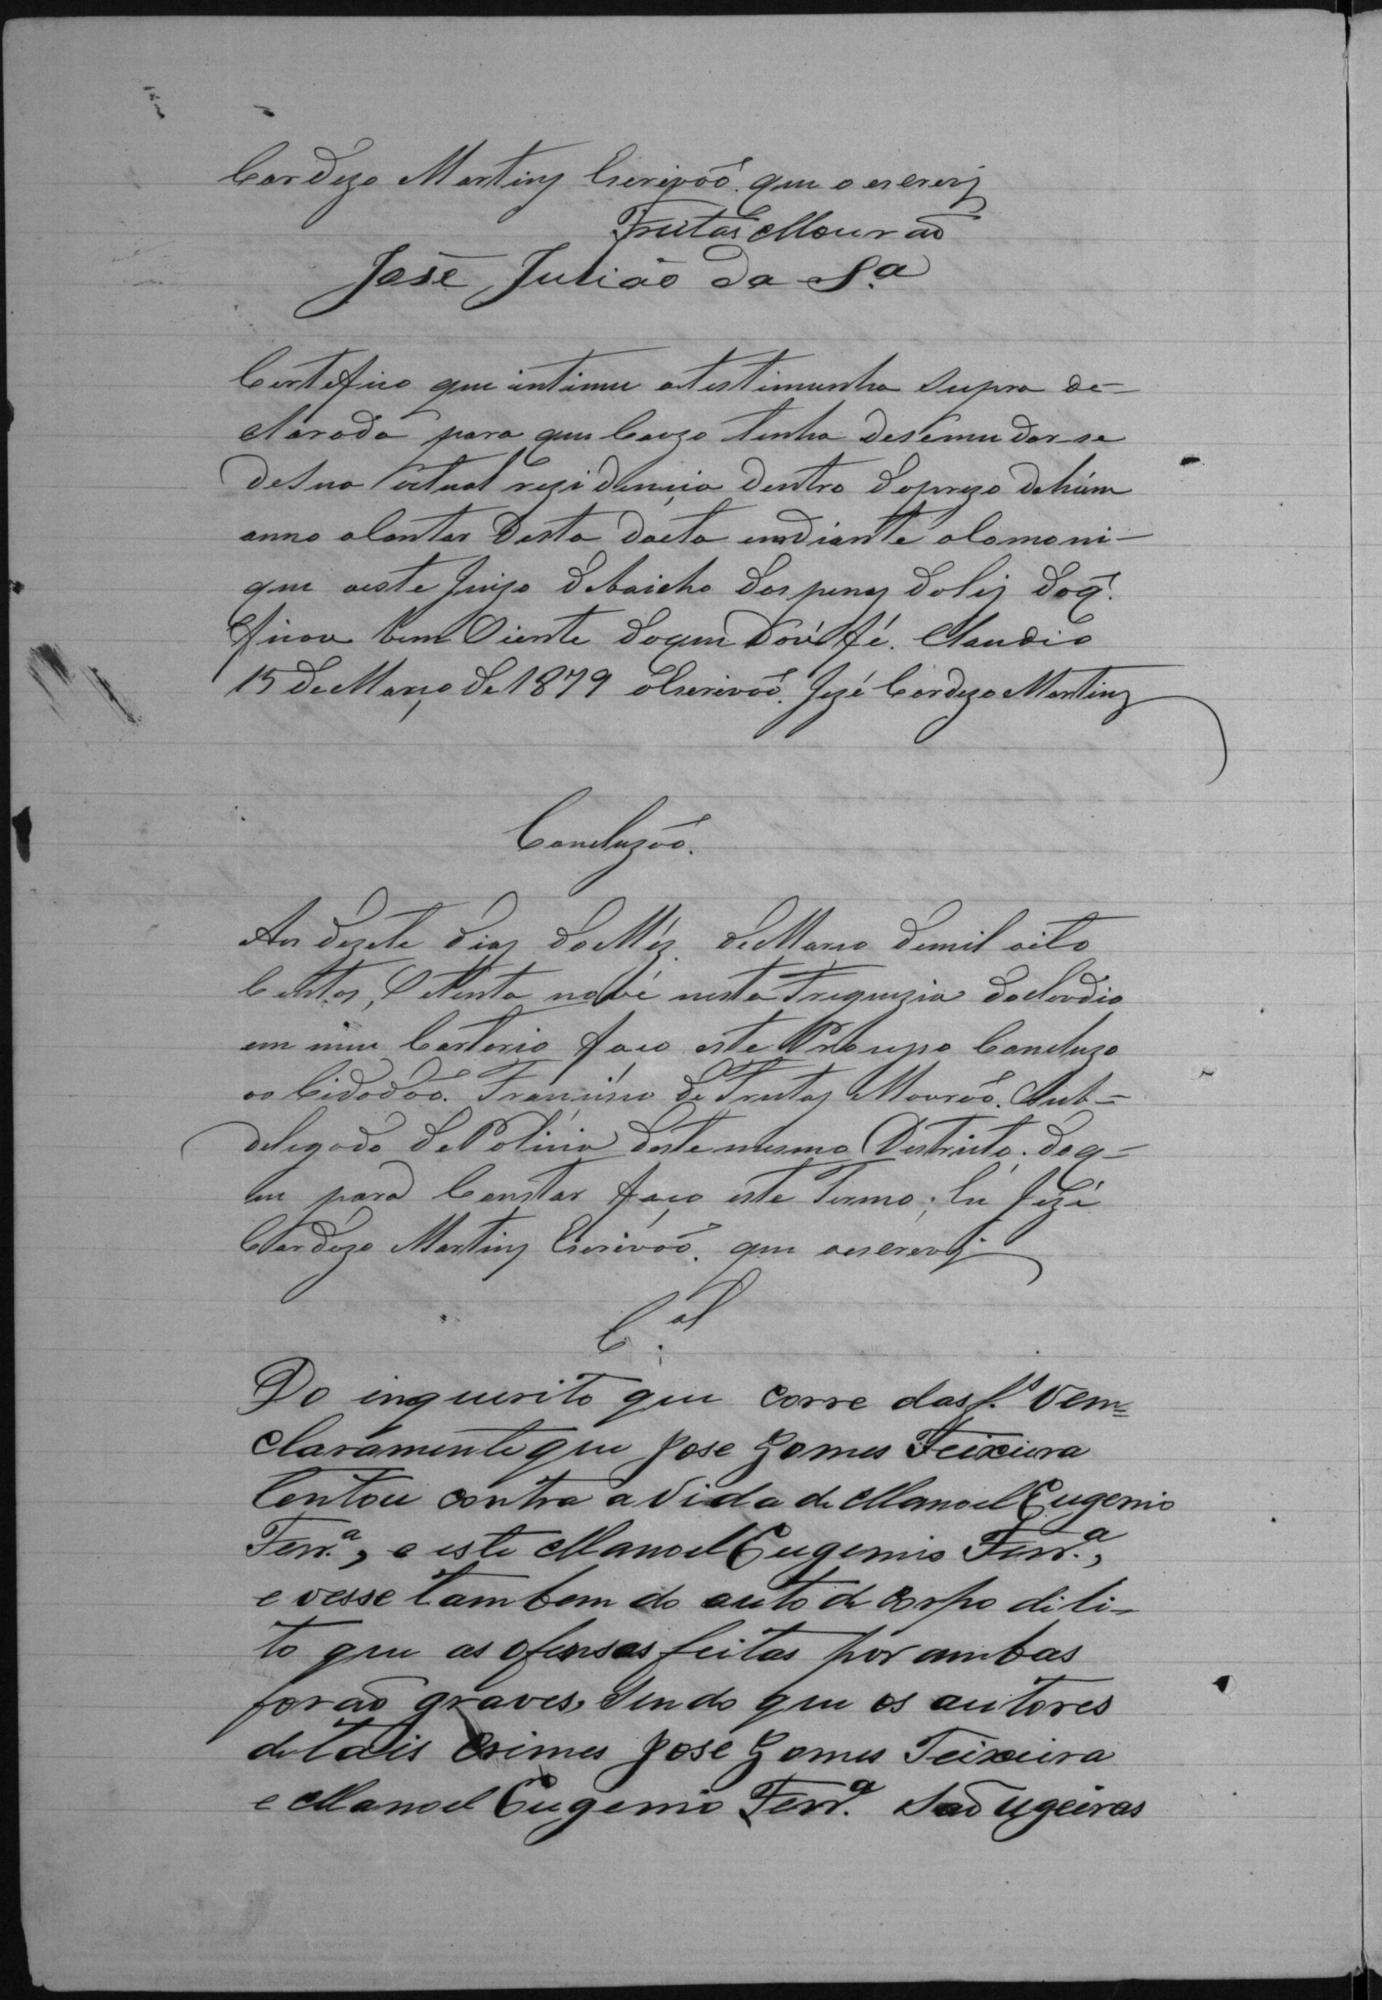 Cardozo Martins Escrivaõ. que o escrevij
Freitas Mourão
José Julião da S.a
Certefico que intimei atestimunha supra de-
clarada para que Cauzo tenha desemudar-se
desua actual rezidencia dentro doprazo dehúm
anno acontar desta dacta emdiante acomoni-
que aeste Juizo debaicho das penas daLei doq.
ficou bem Ciente doque douifé. Claudio
15 de Março de 1879 oEscrivaõ. Jozé Cardozo Martins
Concluzaõ.
Aos dezete dias doMêz. deMarco demil oito
Centos, Cetenta nove nesta Freguezia doClaudio
em meu Cartorio faco este Processo Concluzo
ao Cidadaõ. Francisco de Freitas Mouraõ. Sub-
delegado dePolicia deste mesmo Destricto. doq-
ue para Constar faço este Termo; Eu Jozé
Cardozo Martins Escrivaõ. que oescrevij
C.al
Do inquerito que corre das f.s vem-
claramente que Jose Gomes Teixeira
tentou contra a vida de Manoel Eugenio
Ferr.a, e este Manoel Eugenio Ferr.a,
e vesse tambem do auto de corpo dili-
to que as ofensas feitas por ambas
forão graves, sendo que os autores
de tais crimes José Gomes Teixeira
e Manoel Eugenio Ferr.a são ugeiras